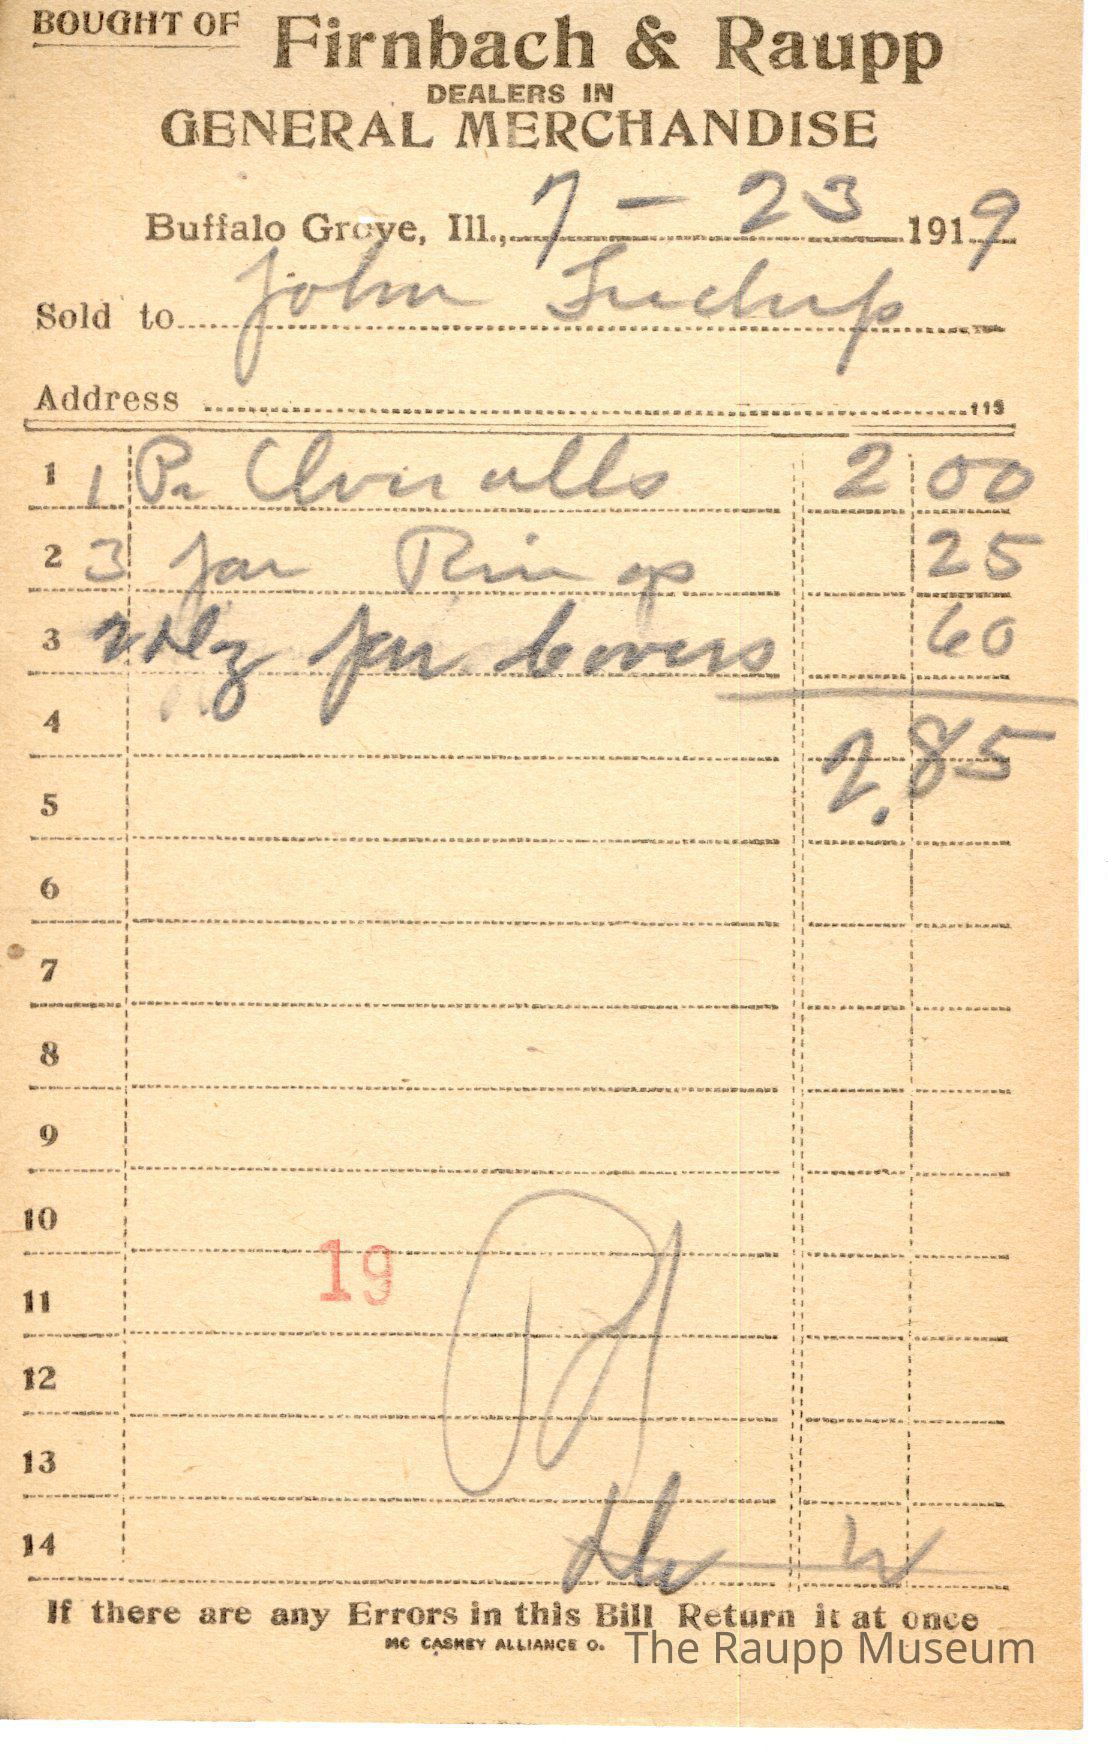 BOUGHT OF Firnbach & Raupp
DEALERS IN
GENERAL MERCHANDISE
Buffalo Grove, Ill., 7 - 23 1919
Sold to John
Address 115
1 1 Pr Overalls 2 00
2 3 Jar Rings 25
3 2 Dz Jar Covers 60
4 2.85
5
6
7
8
9
10
19
11
12
13
14
If there are any Errors in this Bill Return it at once
MC CASKEY ALLIANCE O.
The Raupp Museum